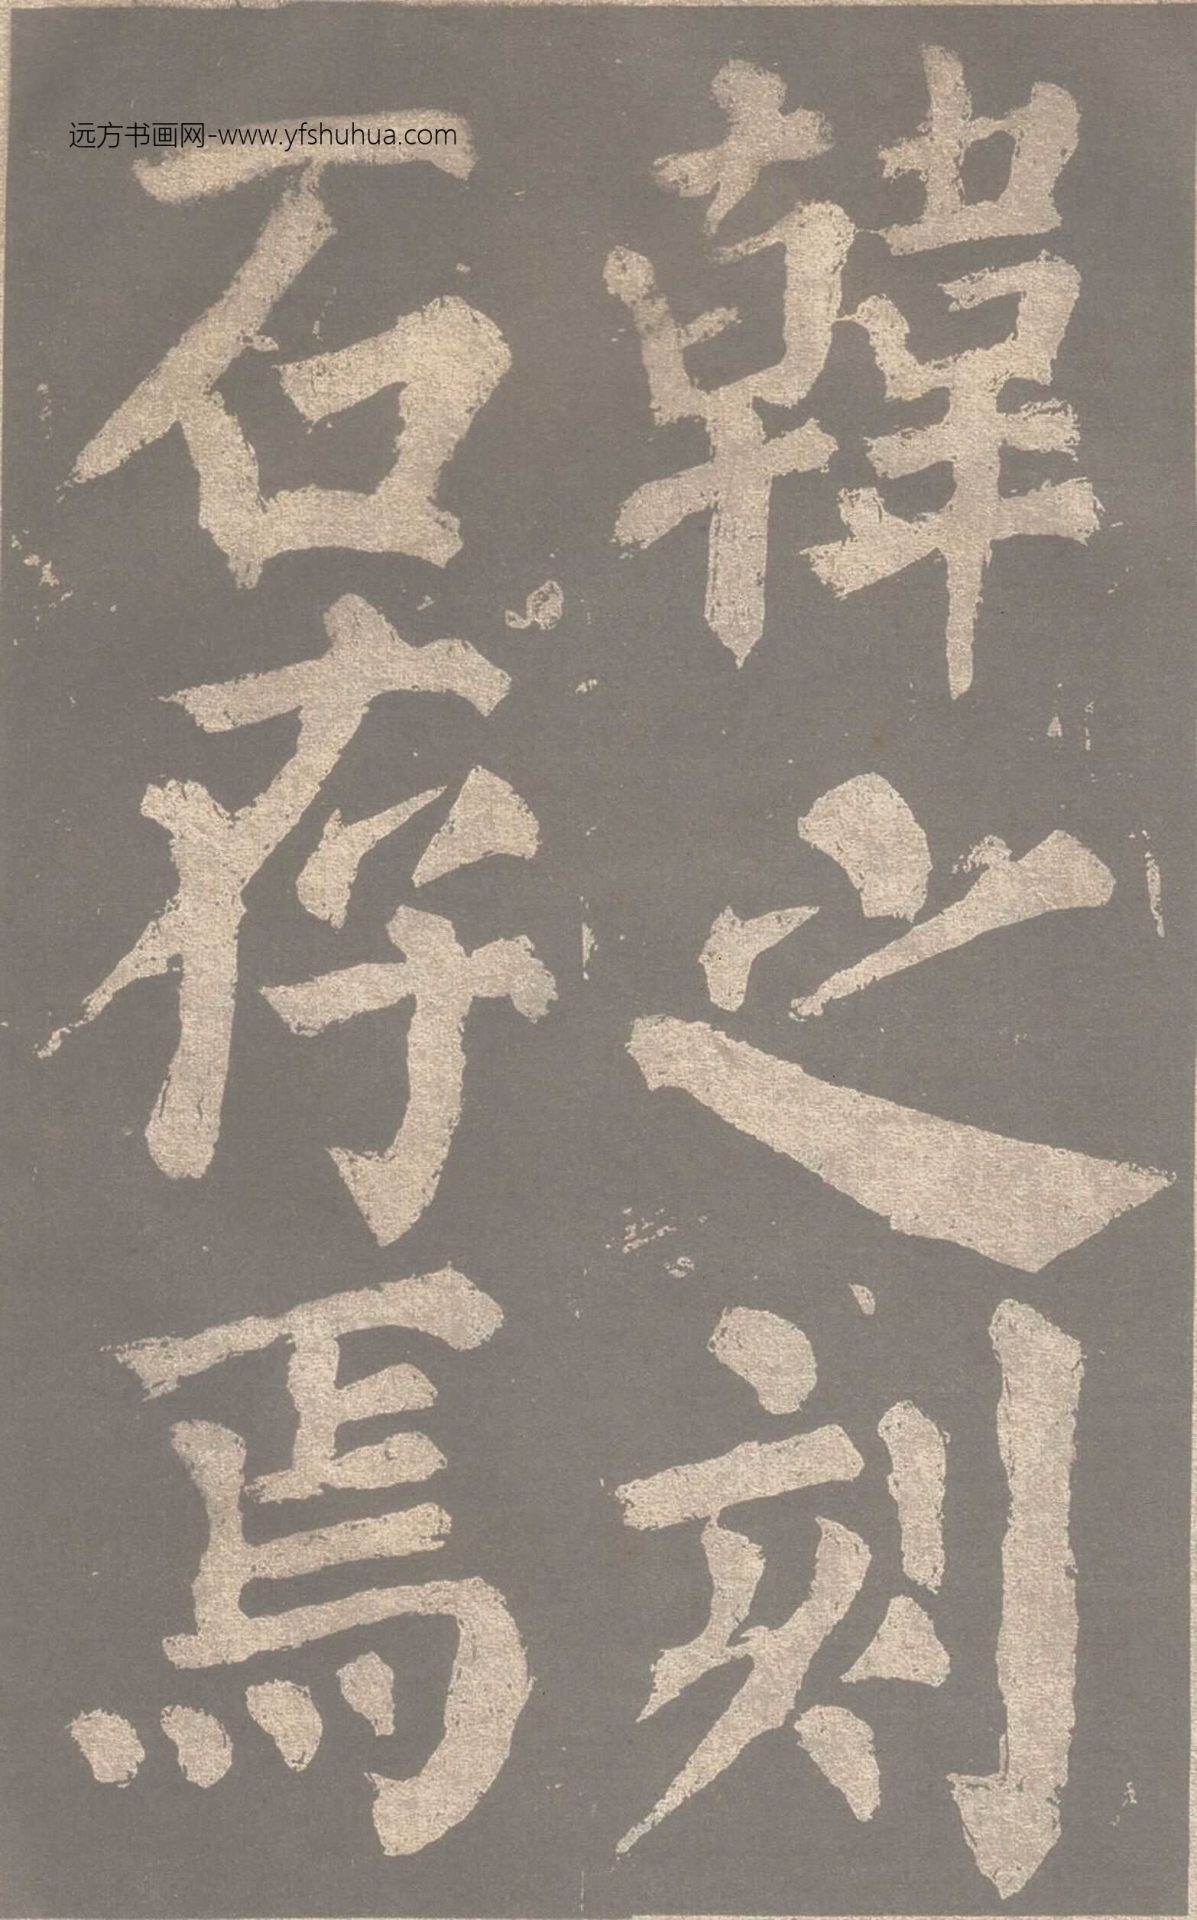 韓之刻
石存焉
远方书画网-www.yfshuhua.com